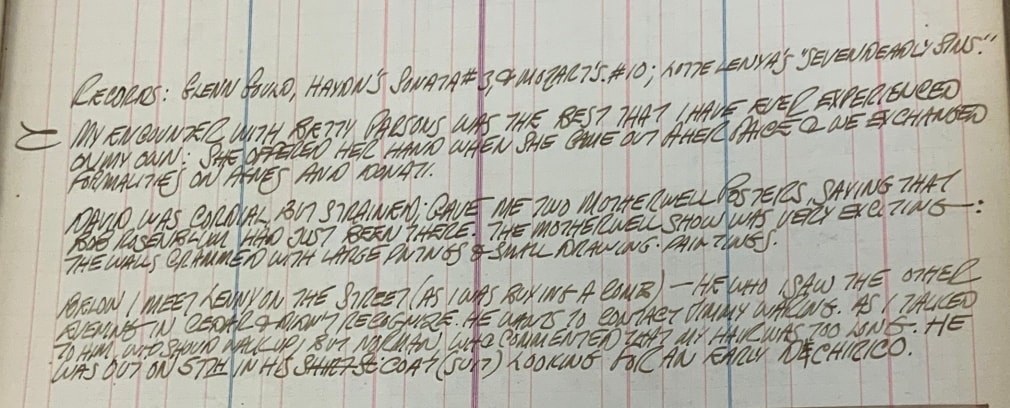 RECORDS: GLENN GOULD, HAYDN'S SONATA #3, & MOZART'S #10; LOTTE LENYA'S "SEVEN DEADLY SINS."
MY ENCOUNTER WITH BETTY PARSONS WAS THE BEST THAT I HAVE EVER EXPERIENCED
ON MY OWN: SHE OFFERED HER HAND WHEN SHE CAME OUT OF HER OFFICE & WE EXCHANGED
FORMALITIES ON AGNES AND DONATI.
DAVID WAS CORDIAL BUT STRAINED; GAVE ME TWO MOTHERWELL POSTERS, SAYING THAT
BOB ROSENBLUM HAD JUST BEEN THERE. THE MOTHERWELL SHOW WAS VERY EXCITING:
THE WALLS CRAMMED WITH LARGE PNTINGS & SMALL DRAWING-PAINTINGS.
BELOW I MEET LENNY ON THE STREET (AS I WAS BUYING A COMB) — HE WHO I SAW THE OTHER
EVENING IN CEDAR & DIDN'T RECOGNIZE. HE WANTS TO CONTACT JIMMY WARING. AS I TALKED
TO HIM, WHO SHOULD WALK UP, BUT NORMAN WHO COMMENTED THAT MY HAIR WAS TOO LONG. HE
WAS OUT ON 5TH IN HIS COAT (SUIT) LOOKING FOR AN EARLY DECHIRICO.